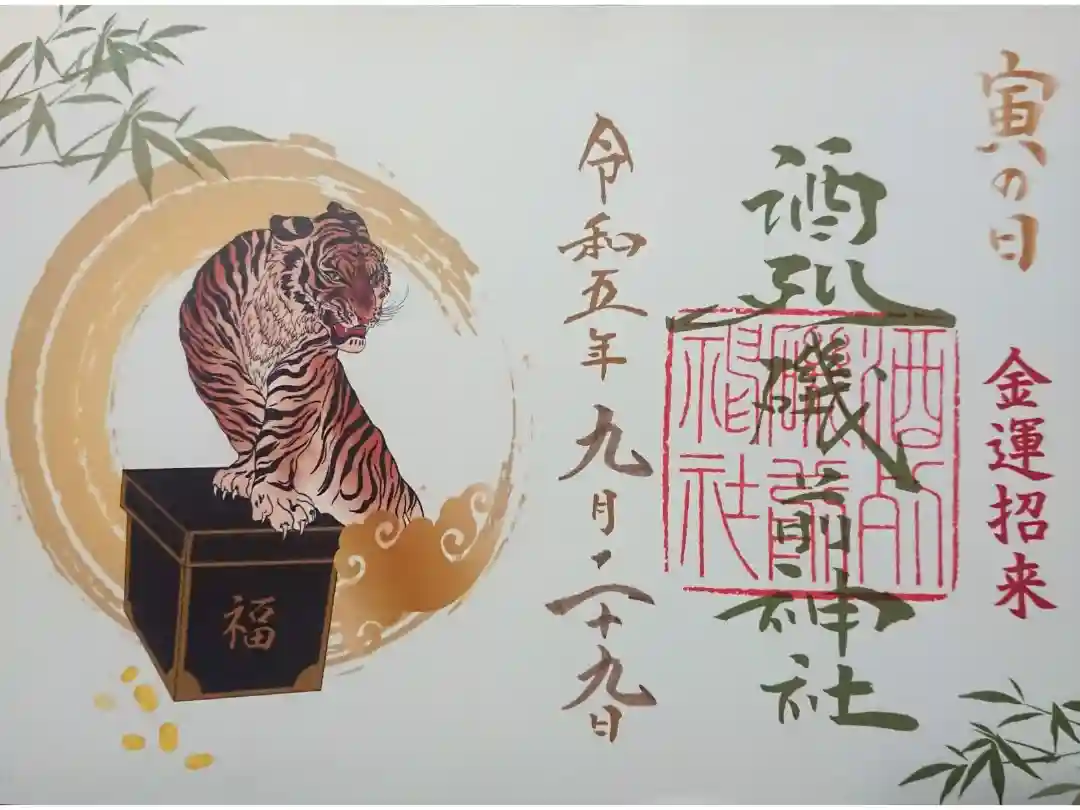 寅の日
金運招来
酒列磯前神社
酒列
磯前
神社
令和五年九月二十九日
福